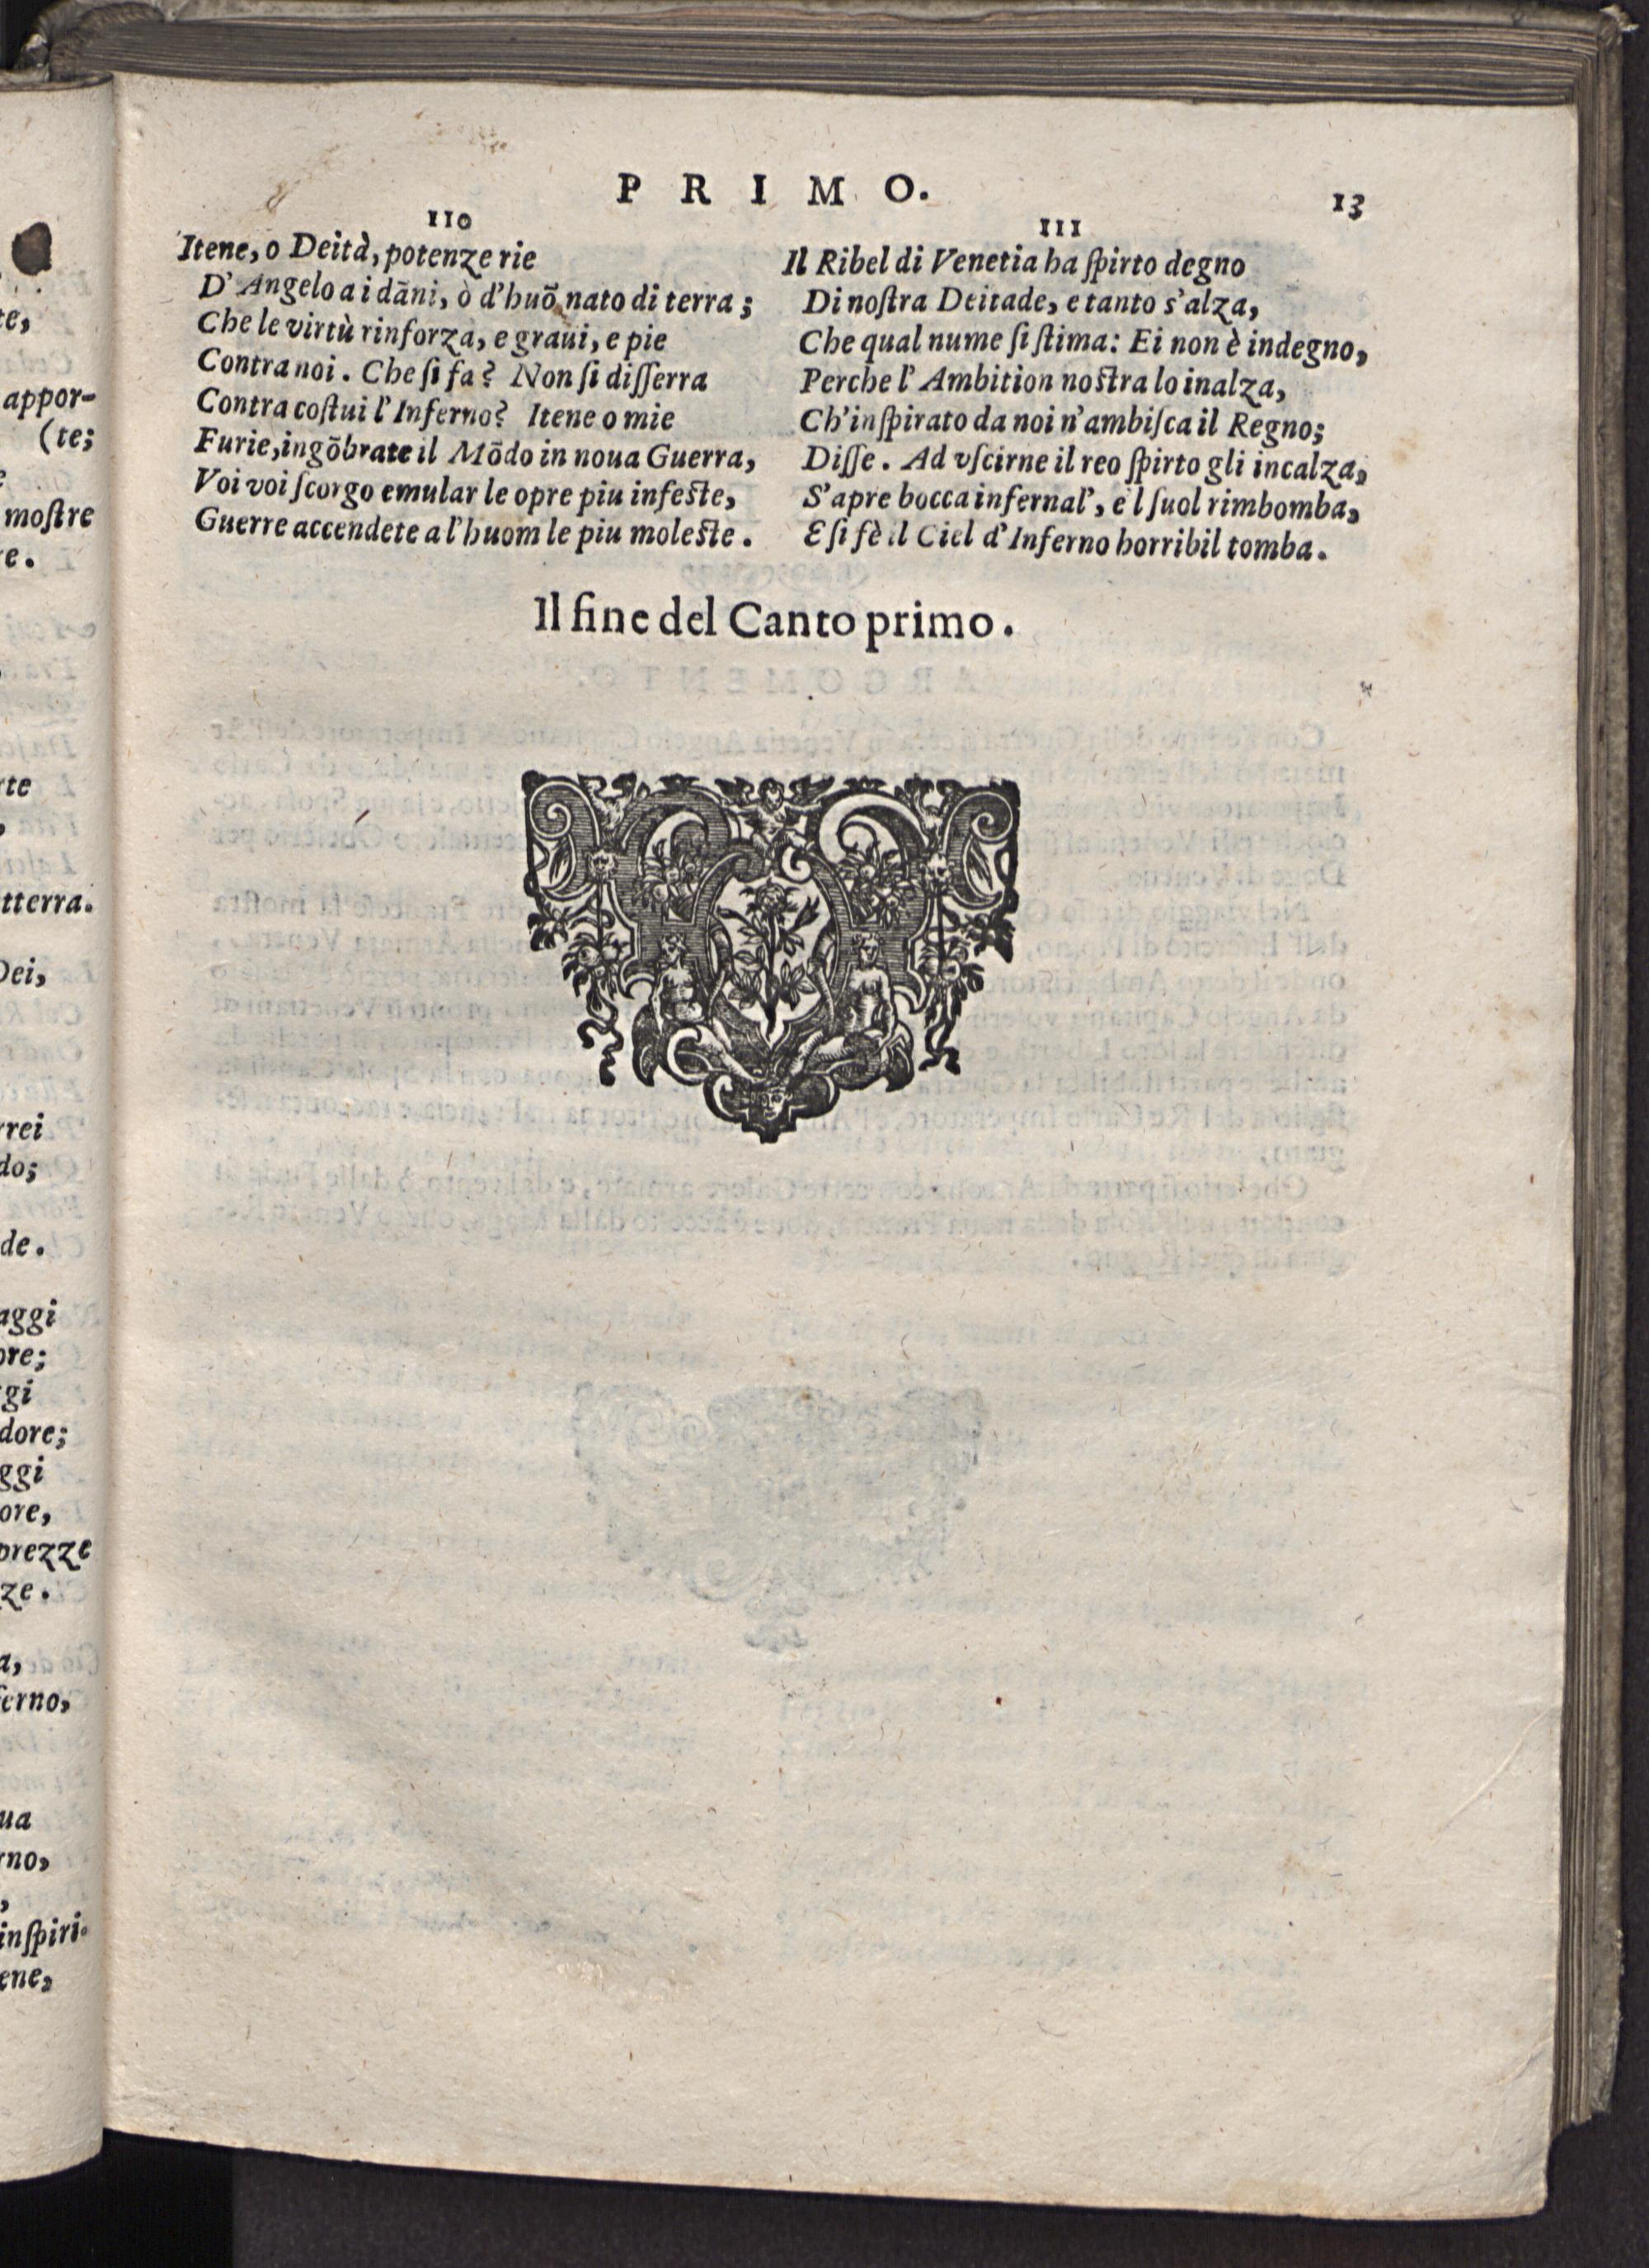 PRIMO.
13
110
Itene, o Deità, potenze rie
D'Angelo a i dãni, ò d'huõ nato di terra;
Che le virtù rinforza, e graui, e pie
Contra noi. Che ſi fa? Non ſi diſſerra
Contra coſtui l'Inferno? Itene o mie
Furie, ingõbrate il Mõdo in noua Guerra,
Voi voi ſcorgo emular le opre piu infeſte,
Guerre accendete a l'huom le piu moleſte.
111
Il Ribel di Venetia ha ſpirto degno
Di noſtra Deitade, e tanto s'alza,
Che qual nume ſi ſtima: Ei non è indegno,
Perche l'Ambition noſtra lo inalza,
Ch'inſpirato da noi n'ambiſca il Regno;
Diſſe. Ad vſcirne il reo ſpirto gli incalza,
S'apre bocca infernal', e'l ſuol rimbomba,
E ſi fè il Ciel d'Inferno horribil tomba.
Il fine del Canto primo.
te,
appor-
(te;
moſtre
re.
rte
tterra.
Dei,
rrei
do;
de.
aggi
ore;
gi
dore;
ggi
ore,
prezze
ze.
a,
ferno,
ua
rno,
inſpiri-
ene,